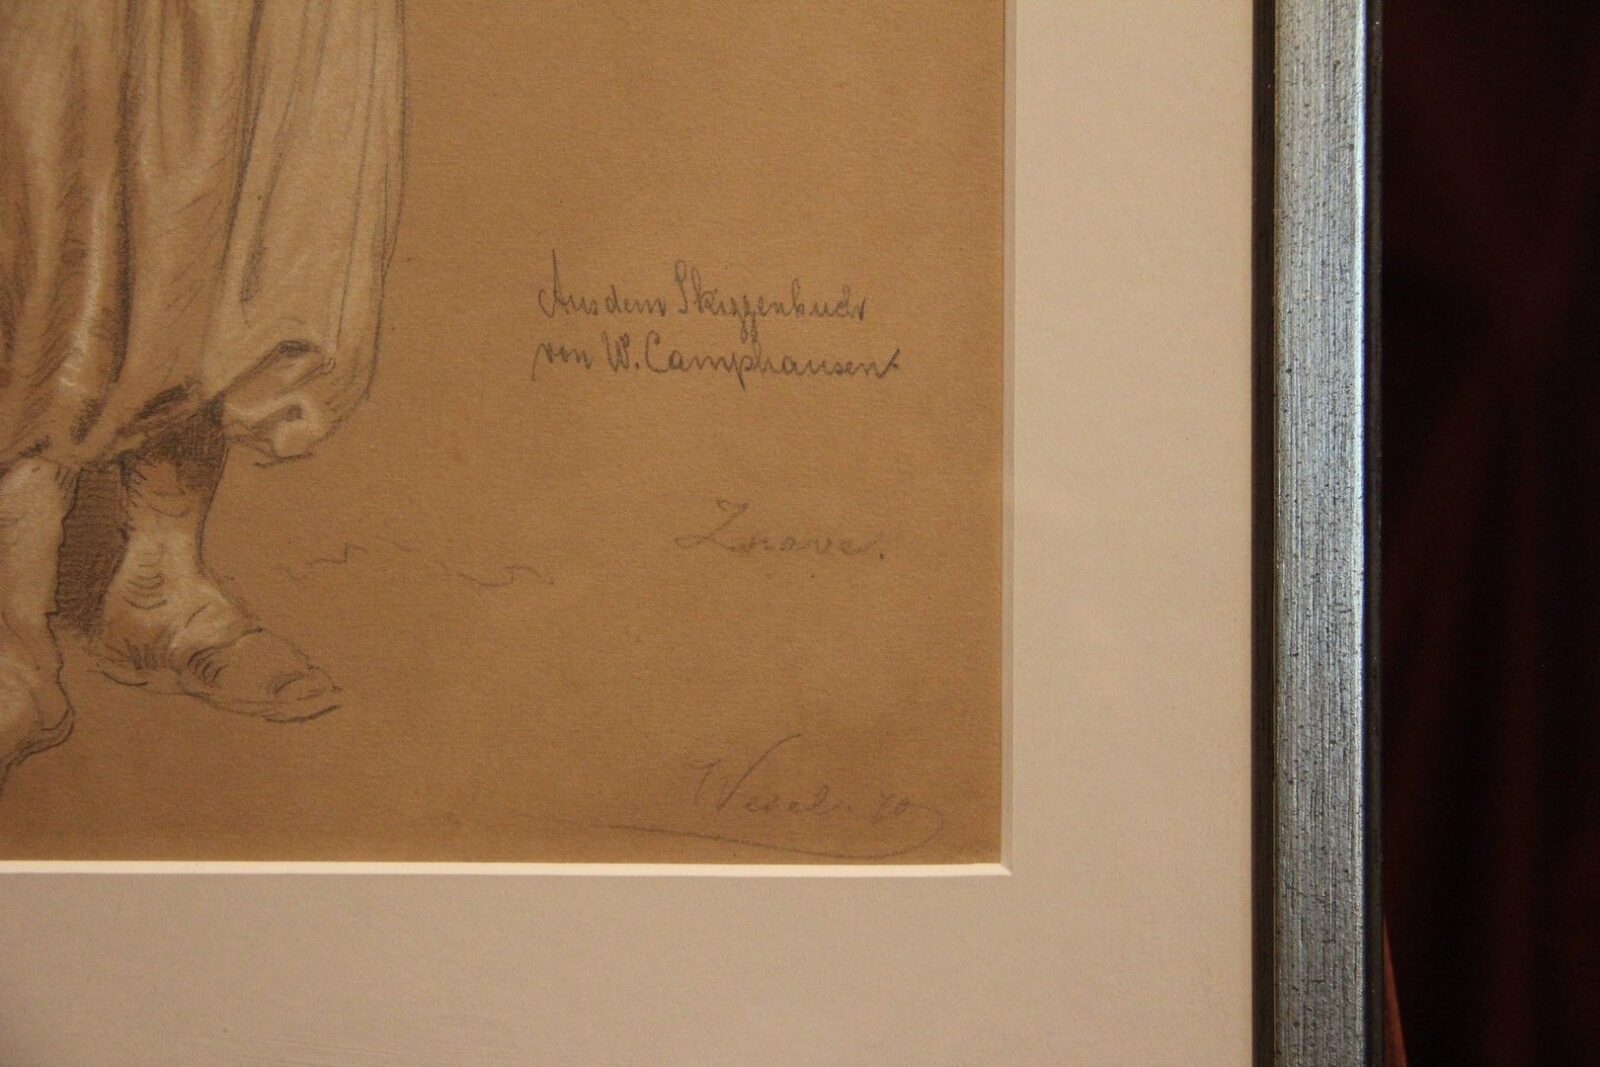 Aus dem Skizzenbuch
von W. Camphausen.
Zuave.
Wesel 70